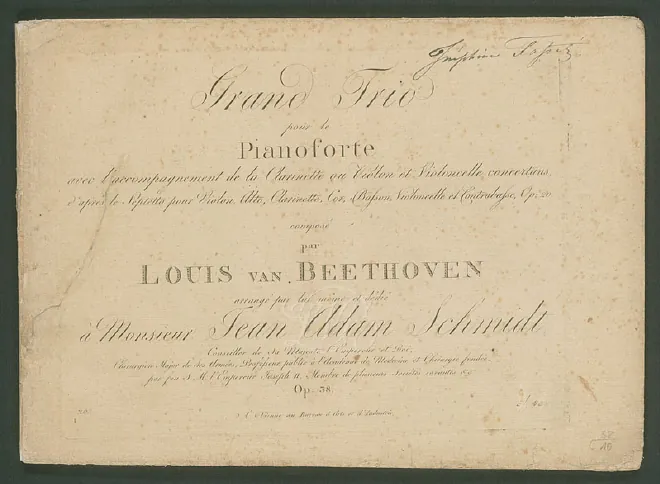 Grand Trio
pour le
Pianoforte
avec l'accompagnement de la Clarinette ou Violon et Violoncelle concertans,
d'après le Septetto pour Violon, Alto, Clarinette, Cor, Basson, Violoncelle et Contrabasse, Op. 20
composé
par
LOUIS VAN BEETHOVEN
arrangé par lui même et dédié
à Monsieur Jean Adam Schmidt
Conseiller de Sa Majesté l'Empereur et Roi,
Chirurgien Major de Ses Armées, Professeur public à l'Académie de Médecine et Chirurgie fondée
par feu S. M. l'Empereur Joseph II, Membre de plusieurs Sociétés
Op. 38.
à Vienne au Bureau d'Arts et d'Industrie